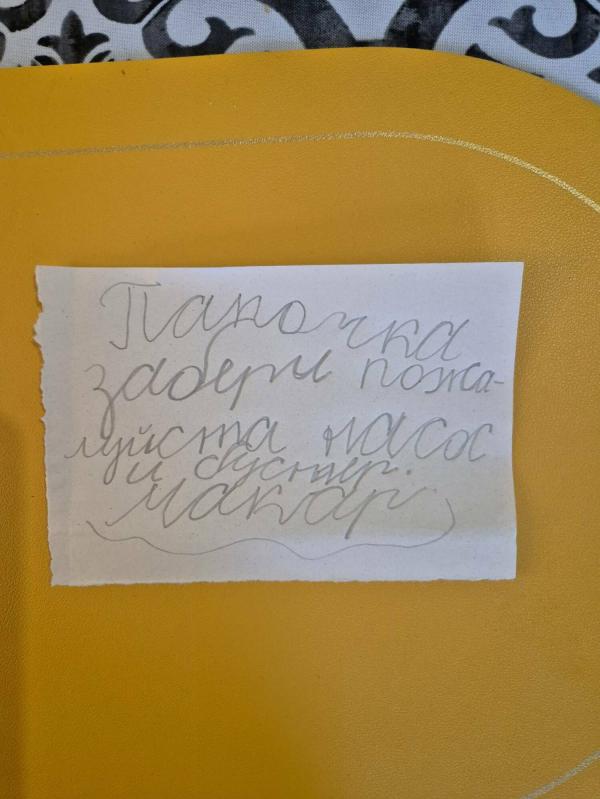 Папочка
забери пожа-
луйста насос
и бустер.
Макар